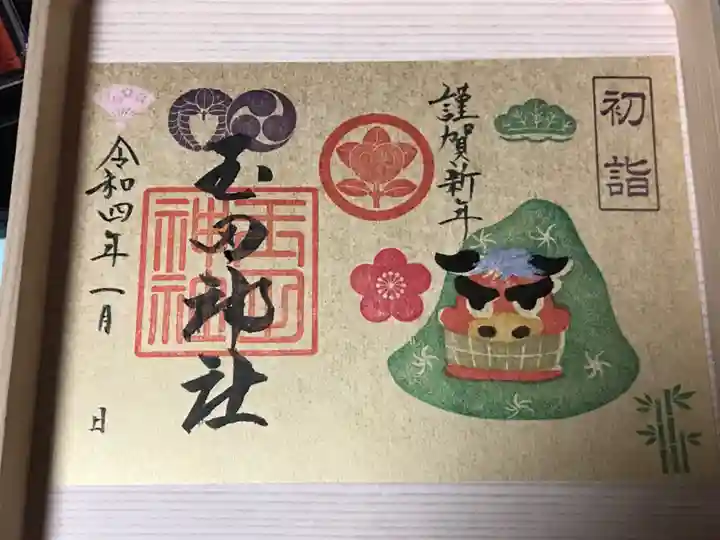 初詣
謹賀新年
玉田神社
玉田神社
令和四年一月
日